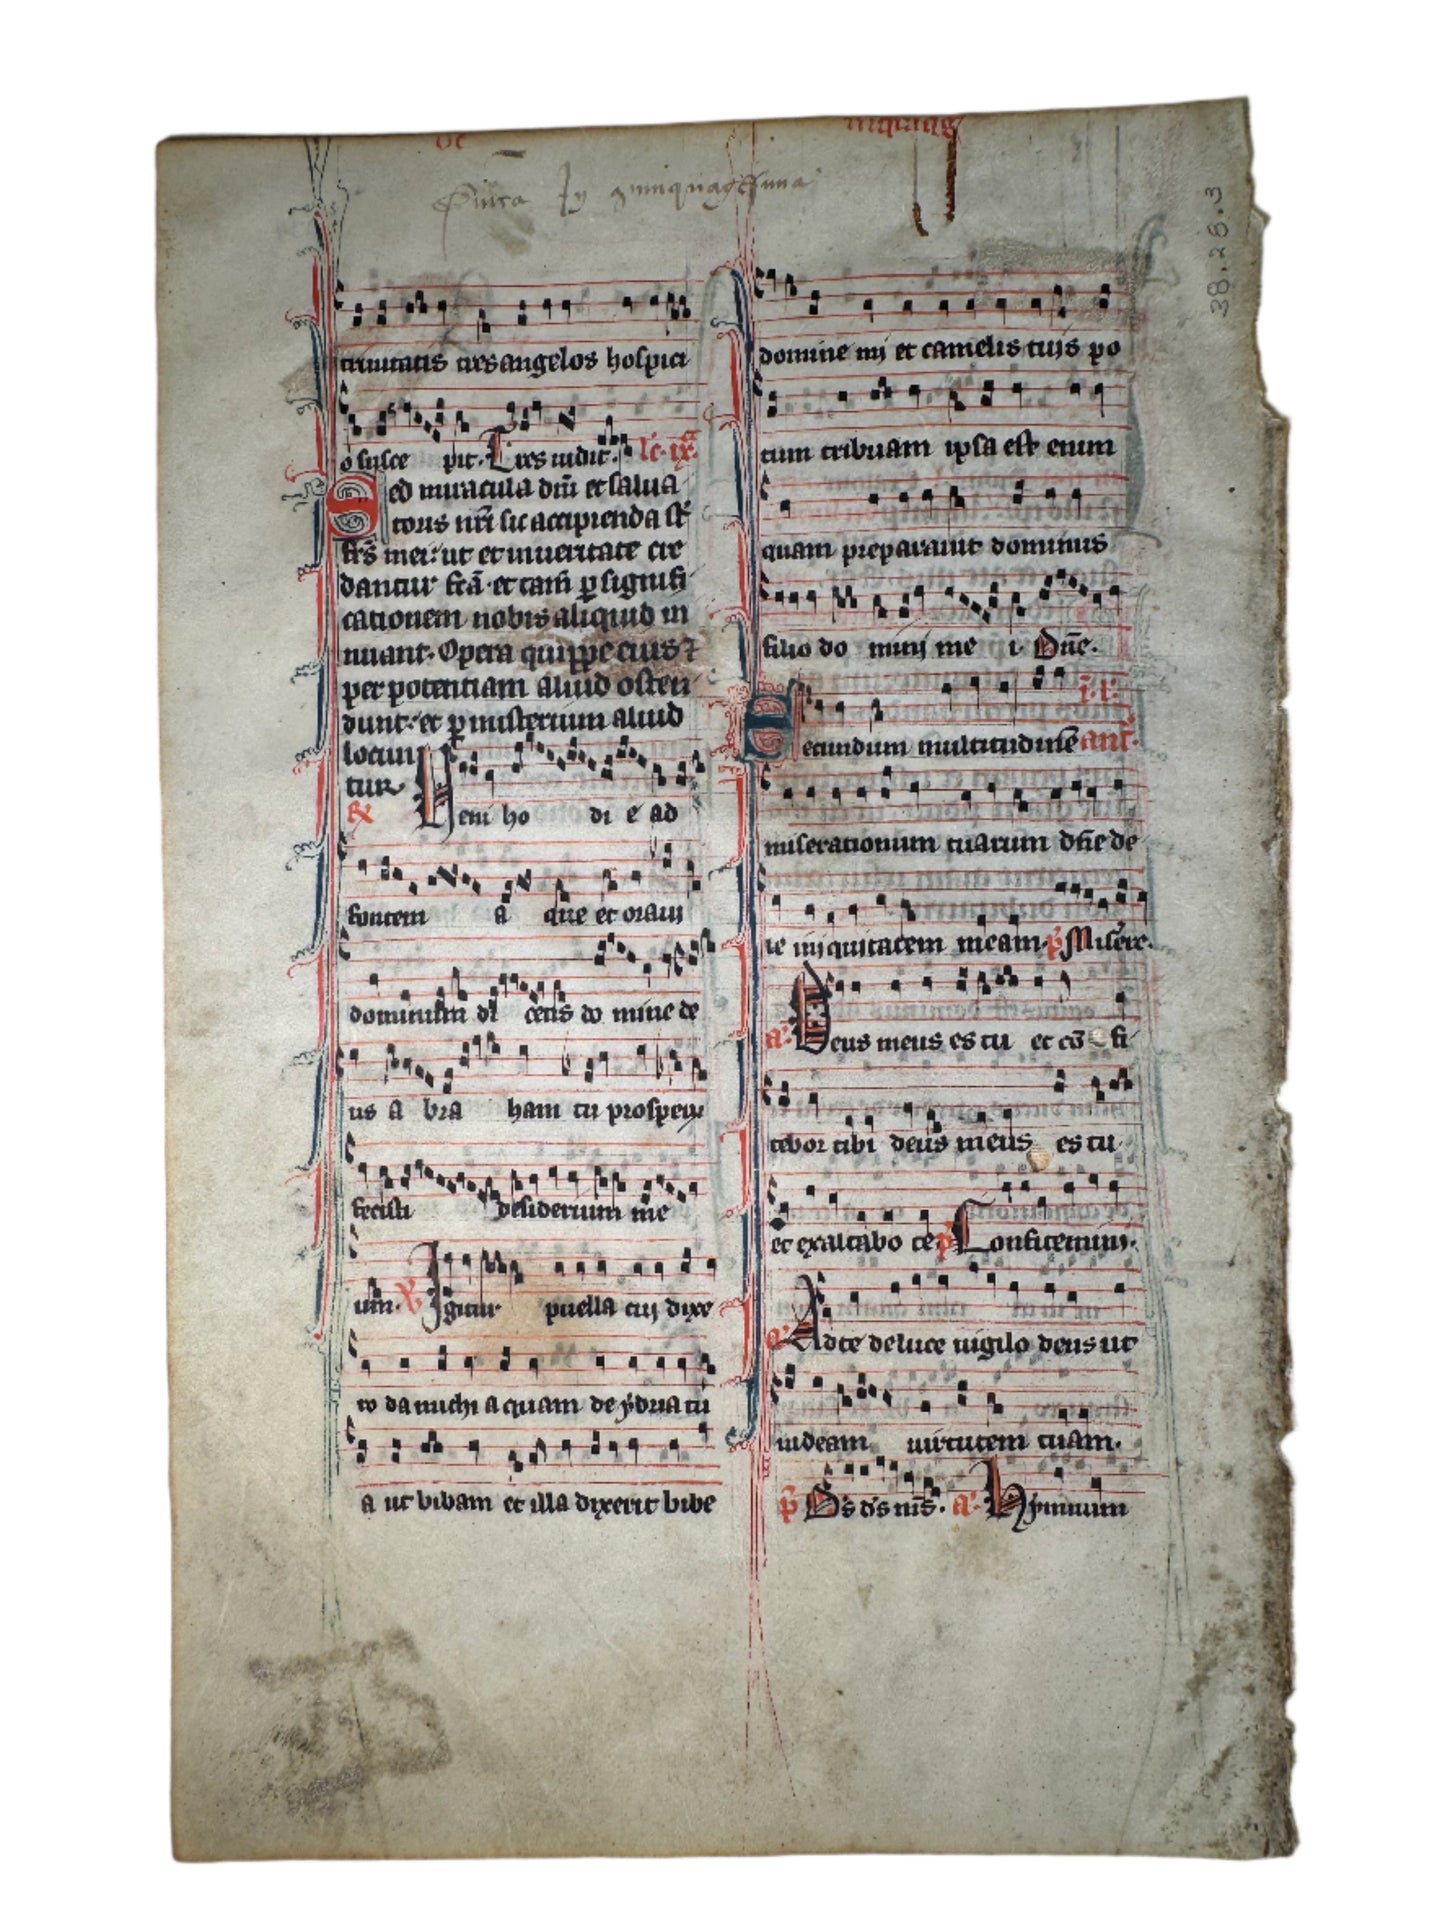 38.28.3
trinitatis tres angelos hospici
o susce pit. Tres uidit. lc̄ ix
Sed miracula dn̄i et salua
toris nr̄i sic accipienda st̄
frs̄ mei: ut et in ueritate cre
dantur fc̄a et tam̄ p signifi
cationem nobis aliquid in
nuant. Opera quippe eius ⁊
per potentiam aliud osten
dunt: et p misterium aliud
locun
tur
℟ Veni ho di e ad
fontem a que et oraui
dominum di cens do mine de
us a bra ham tu prosperū
fecisti desiderium me
um. ℣ Igitur puella cui dixe
ro da michi aquam de ydria tu
a ut bibam et illa dixerit bibe
domine mi et camelis tuis po
tum tribuam ipsa est enim
quam preparauit dominus
filio do mini me i. Dn̄e.
Secundum multitudinē ant̄.
miserationum tuarum dn̄e de
le iniquitatem meam. p̄ Misere.
a. Deus meus es tu et cō fi
tebor tibi deus meus es tu
et exaltabo te p̄ Confitemini.
a. Ad te de luce uigilo deus ut
uideam uirtutem tuam.
p̄ Ds̄ ds̄ ms̄. a. Hymnum